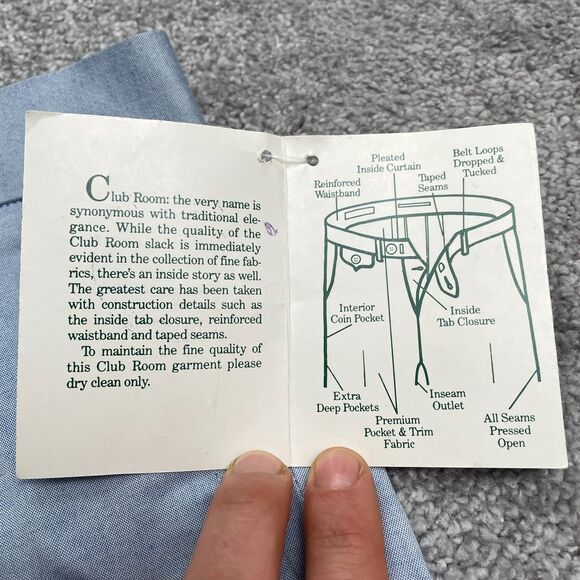 Club Room: the very name is
synonymous with traditional ele-
gance. While the quality of the
Club Room slack is immediately
evident in the collection of fine fab-
rics, there's an inside story as well.
The greatest care has been taken
with construction details such as
the inside tab closure, reinforced
waistband and taped seams.
To maintain the fine quality of
this Club Room garment please
dry clean only.
Reinforced
Waistband
Pleated
Inside Curtain
Taped
Seams
Belt Loops
Dropped &
Tucked
Interior
Coin Pocket
Inside
Tab Closure
Extra
Deep Pockets
Premium
Pocket & Trim
Fabric
Inseam
Outlet
All Seams
Pressed
Open